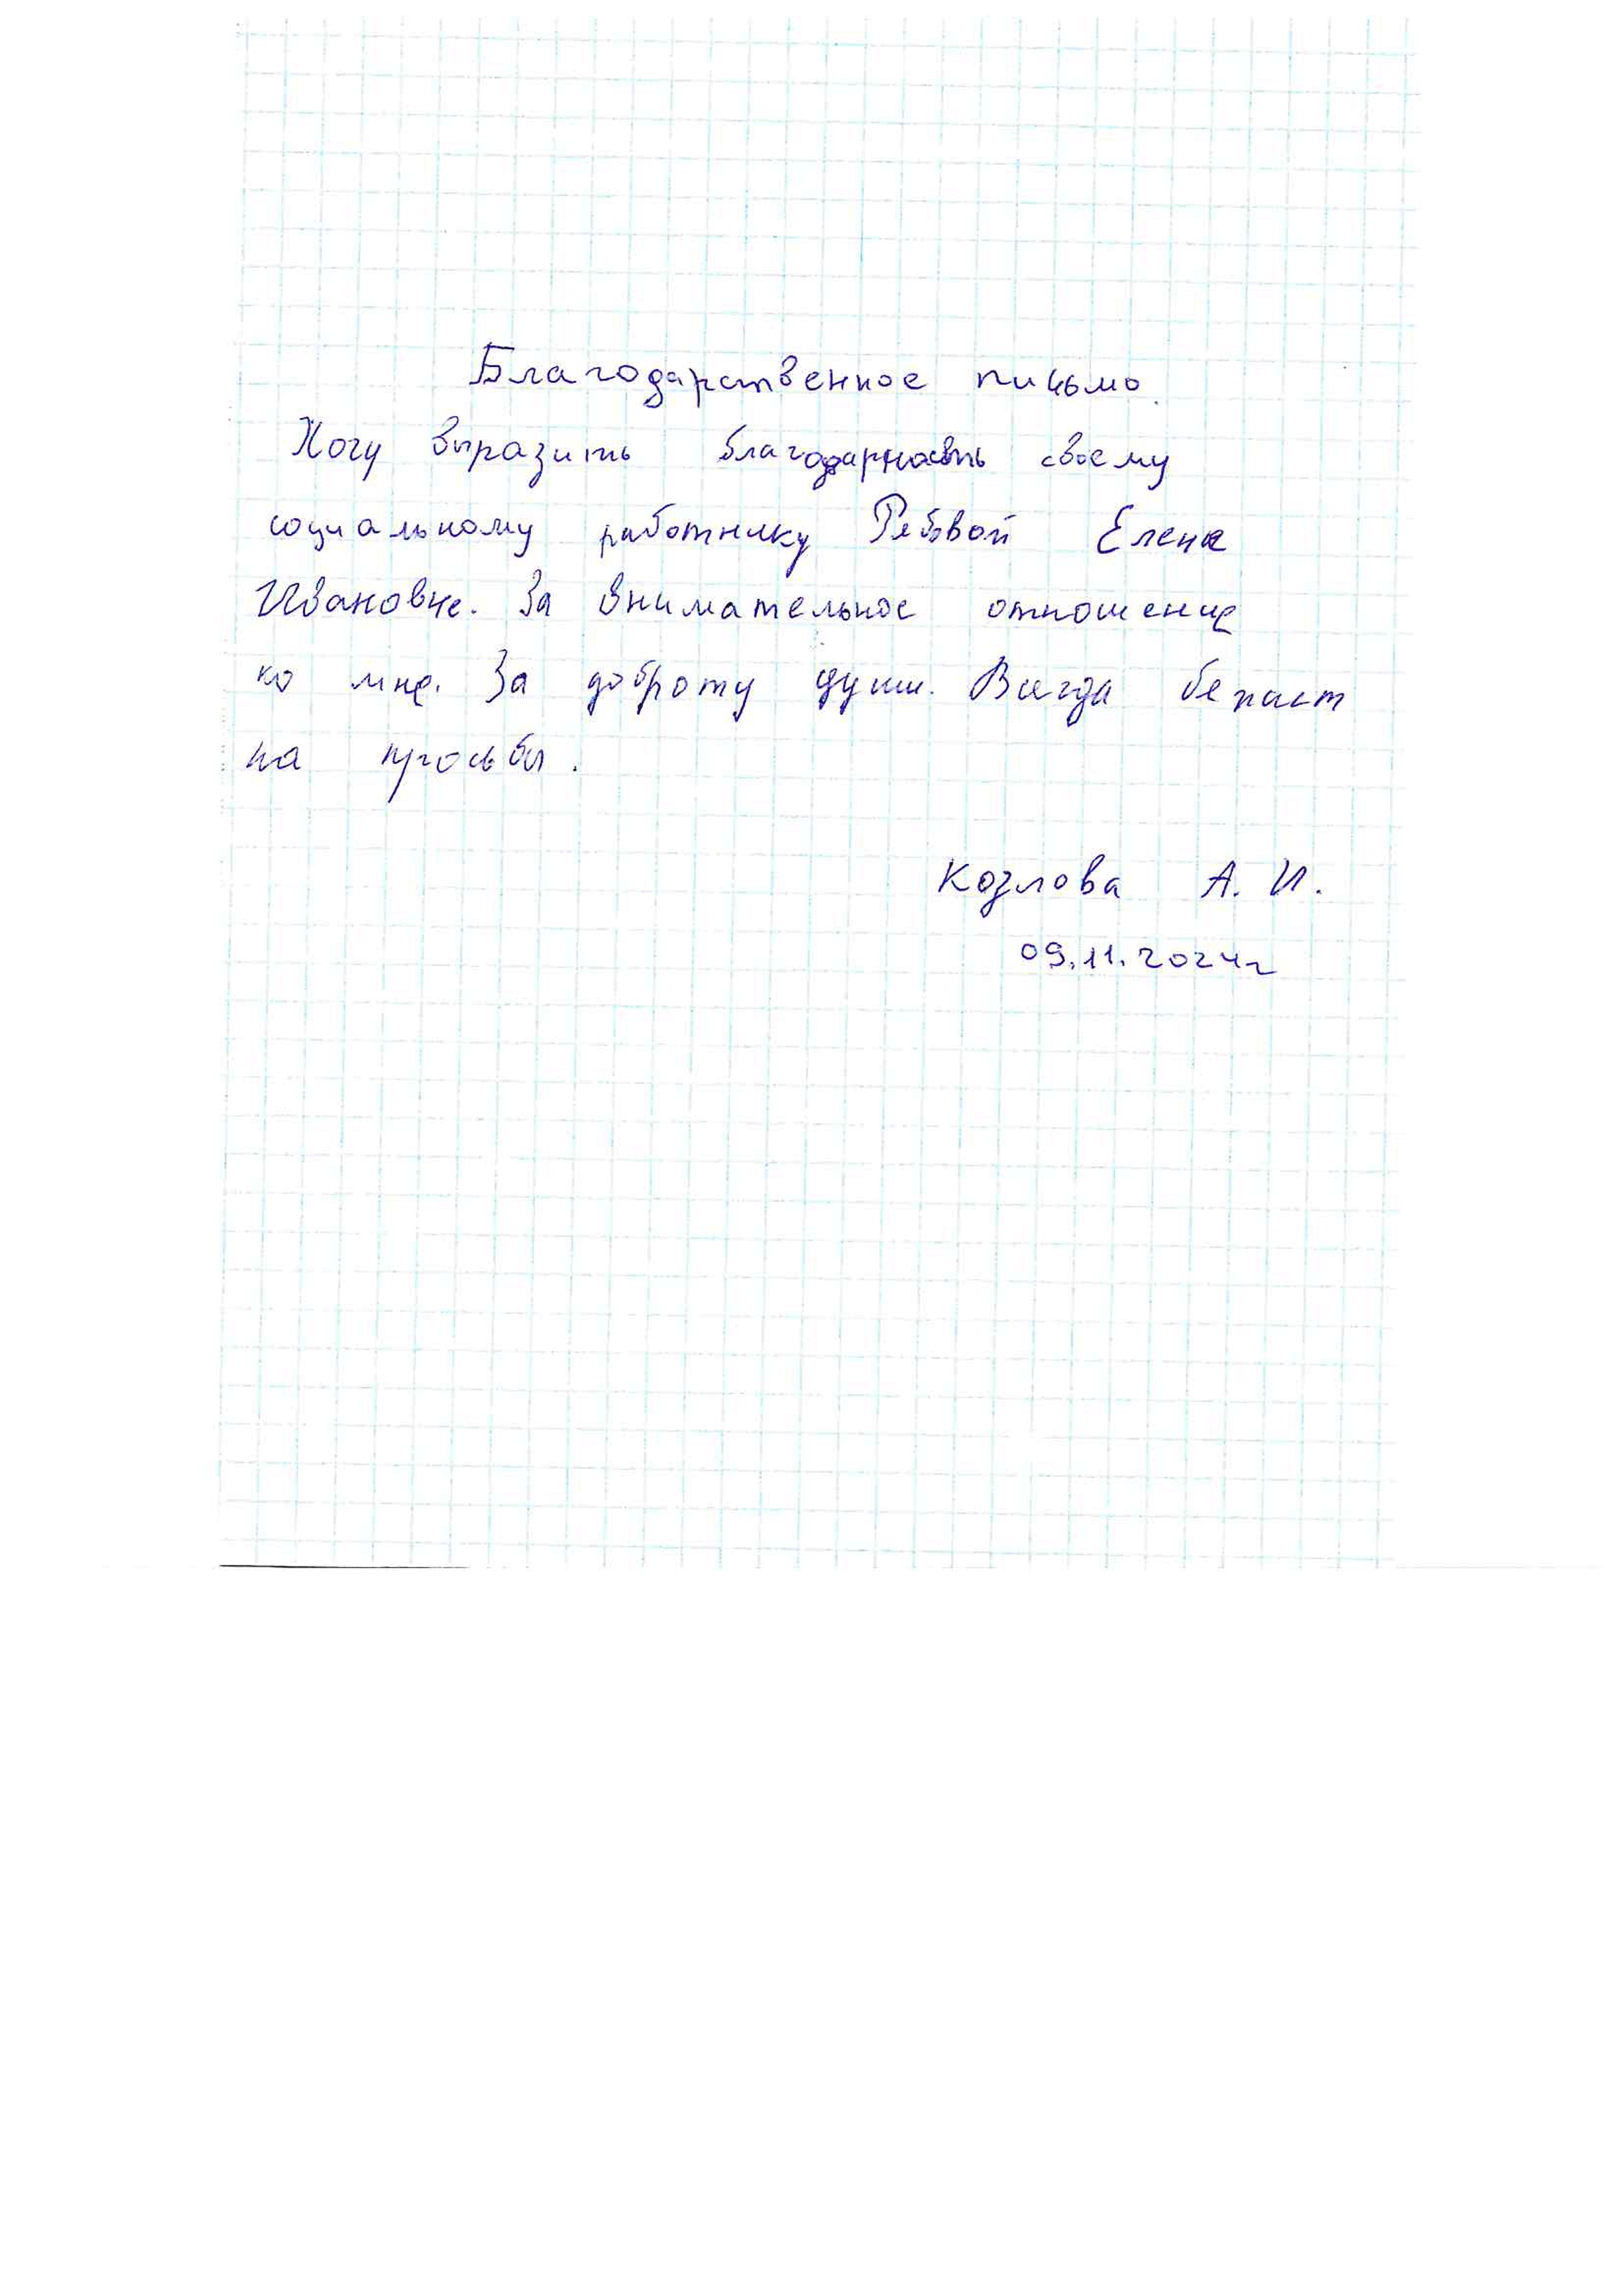 Благодарственное письмо.
Хочу выразить благодарность своему
социальному работнику Рябовой Елене
Ивановне. За внимательное отношение
ко мне. За доброту души. Всегда
на просьбы.
Козлова А. И.
09.11.2024г